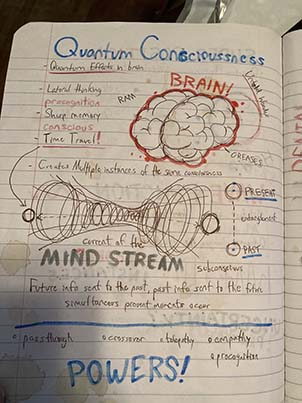 Quantum Consciousness
- Quantum Effects in brain
BRAIN!
- Lateral thinking
RNA
precognition
- Sharp memory
conscious
- Time Travel!
CREASES
- Creates Multiple instances of the same consciousness
PRESENT
entanglement
PAST
current of the
MIND STREAM
subconscious
Future info sent to the past, past info sent to the future
simultaneous present moments occur
passthrough crossover telepathy empathy
precognition
POWERS!